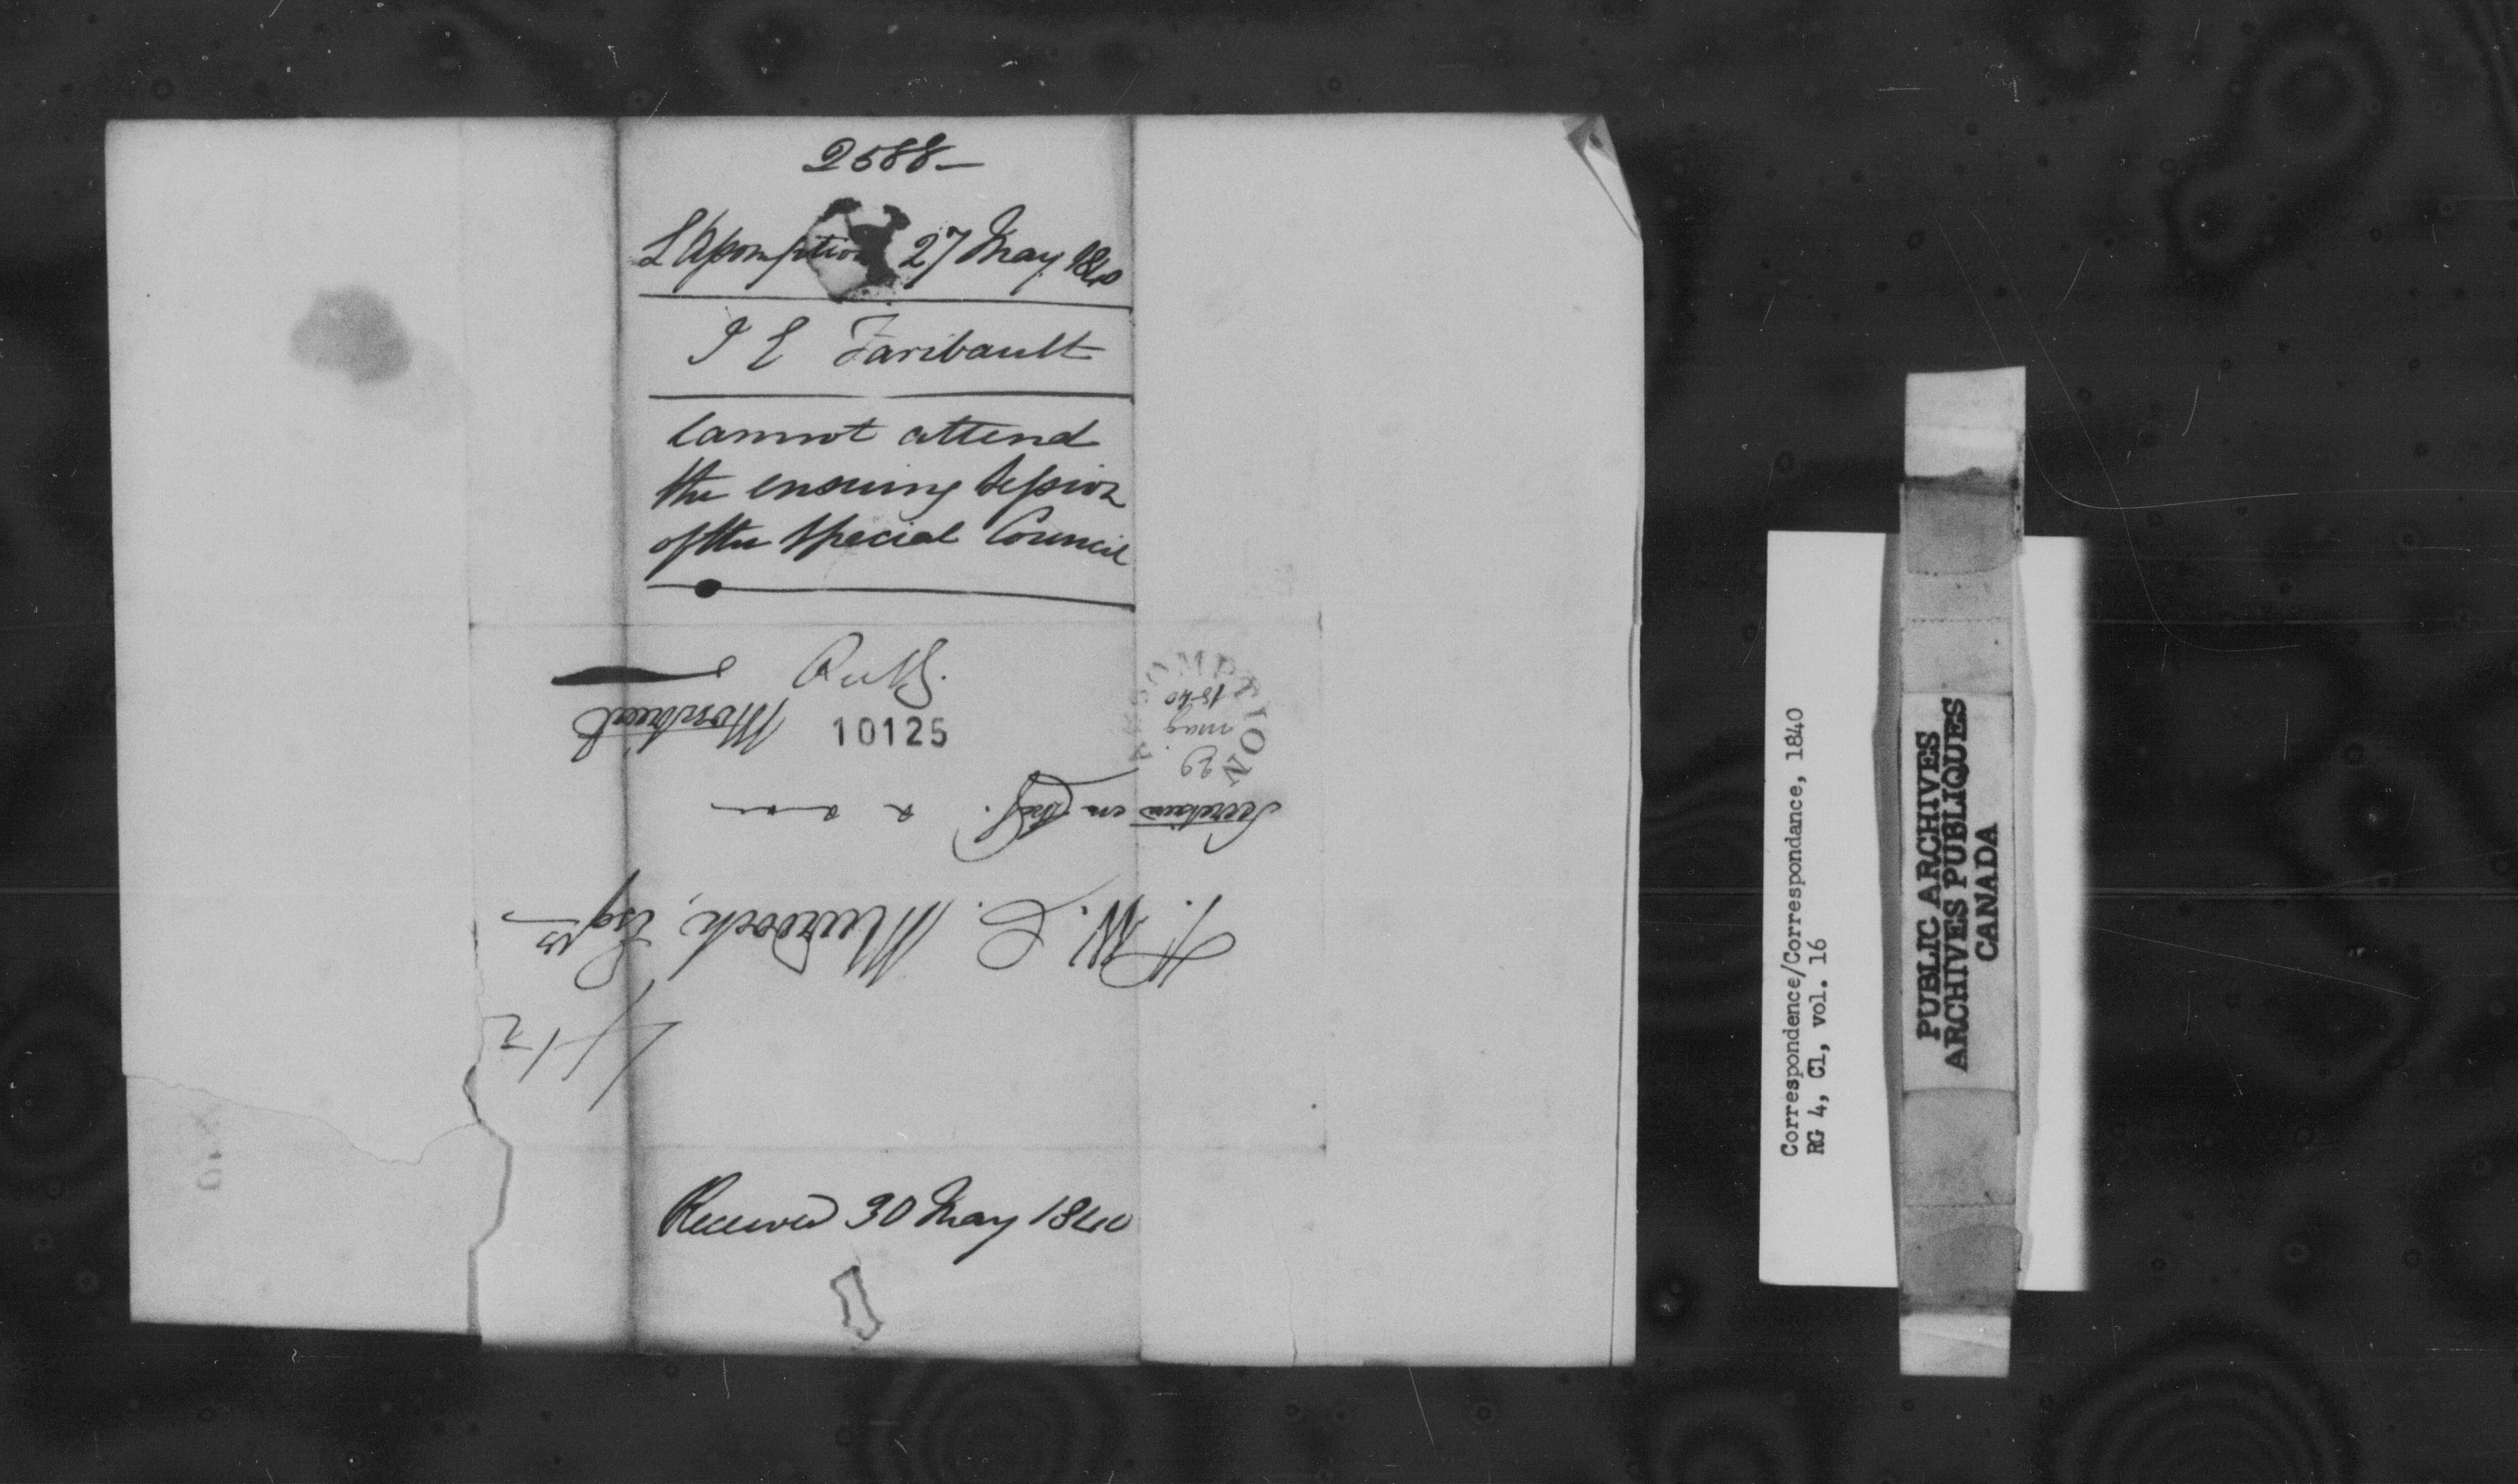 2588-
L'Assomption 27 May 1840
J E Faribault
Cannot attend
the ensuing Session
of the Special Council
10125
Montreal
ASSOMPTION
29
may
1840
Secretaire en Chef.
T. W. C. Murdoch, Esqre
4 1/2
Received 30 May 1840
Correspondence/Correspondance, 1840
RG 4, C1, vol. 16
PUBLIC ARCHIVES
ARCHIVES PUBLIQUES
CANADA